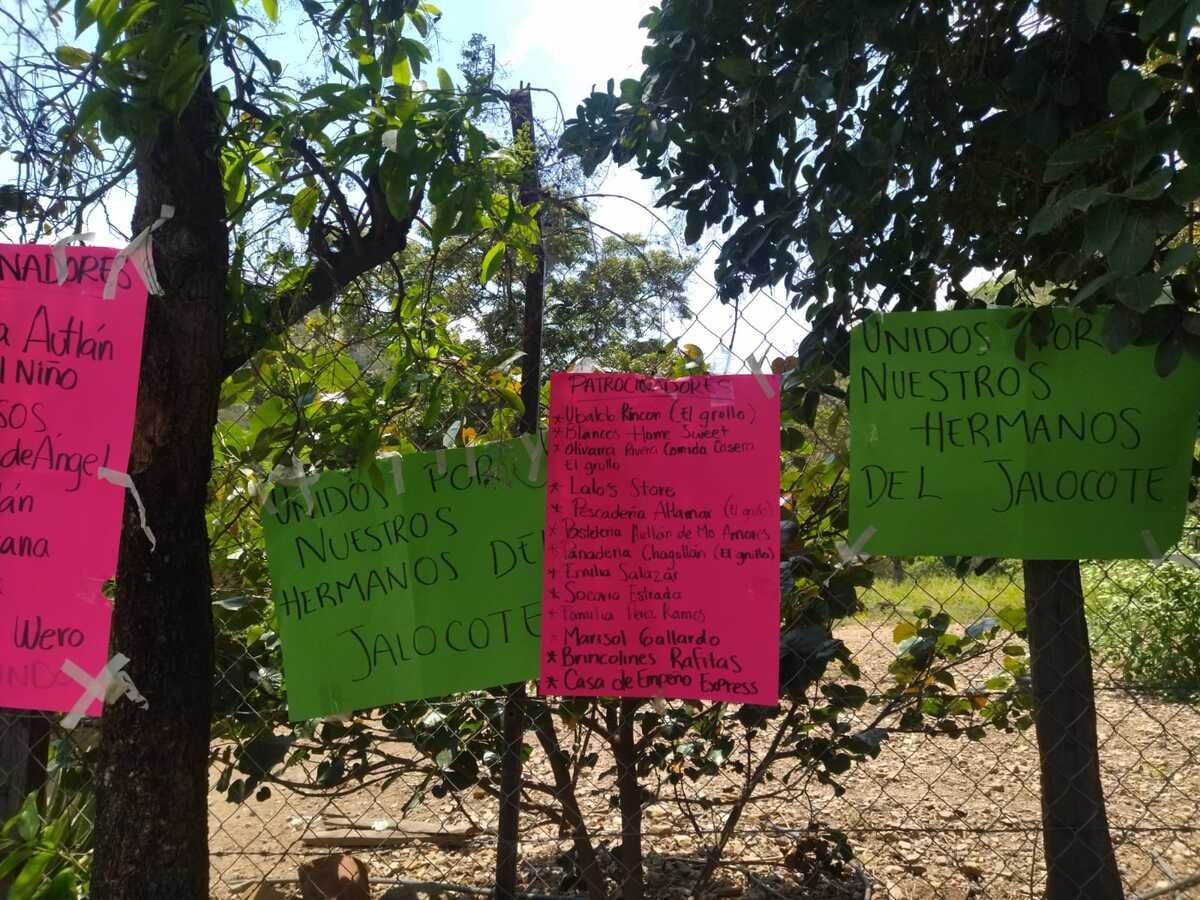 NADORES
a Autlán
l Niño
sos
de Ángel
lán
ana
Wero
UNIDOS POR
NUESTROS
HERMANOS DE
JALOCOTE
PATROCINADORES
* Ubaldo Rincon (El grullo)
* Blancos Home Sweet
* Olivarra Rivera Comida Casera
El grullo
* Lalo's Store
* Pescaderia Altamar (El grullo)
* Pasteleria Autlán de Mis Amores
* Panaderia Chagullan (El grullo)
* Emilia Salazar
* Socorro Estrada
* Familia Pera Ramos
* Marisol Gallardo
* Brincolines Rafitas
* Casa de Empeño Express
UNIDOS POR
NUESTROS
HERMANOS
DEL JALOCOTE